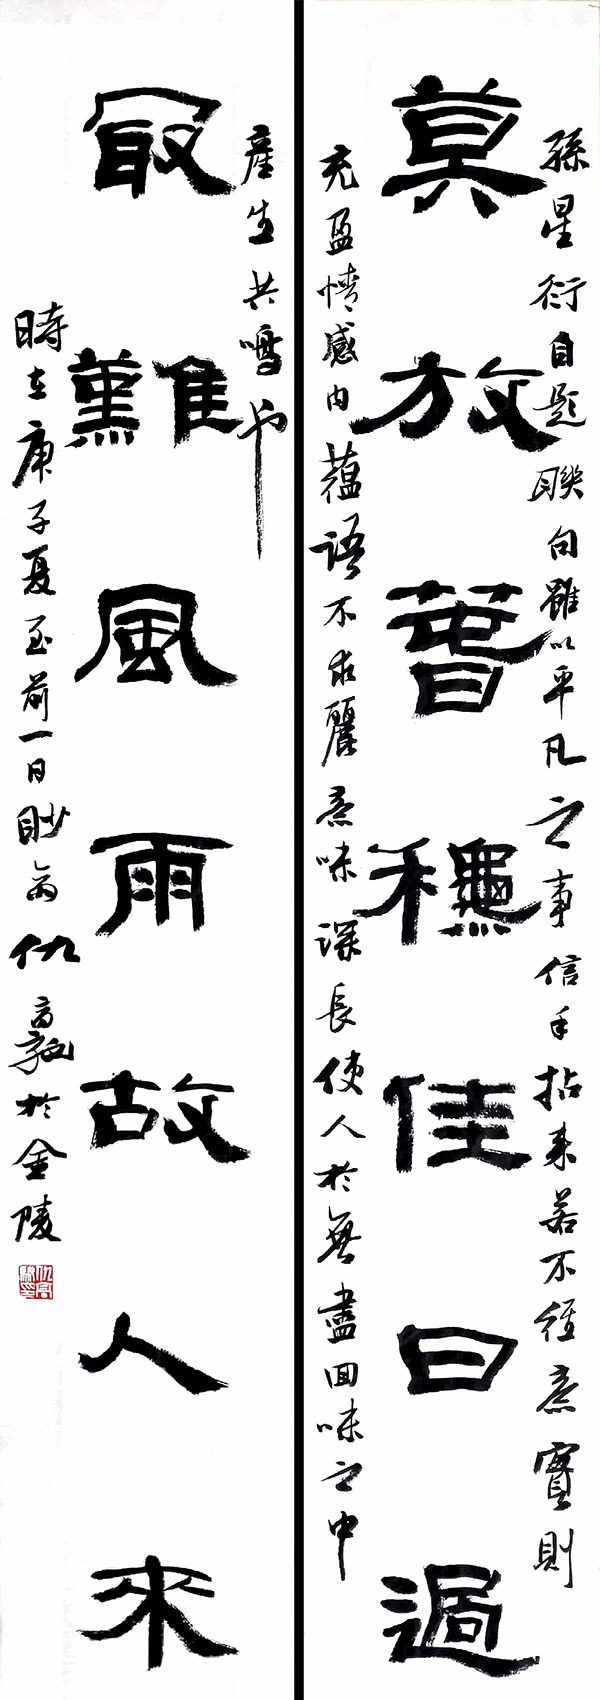 孫星衍自題聯句雖以平凡之事信手拈來若不經意實則
莫放萅龝佳日過
充盈情感内藴語不求麗意味深長使人於無盡回味之中
產生共鳴也
冣難風雨故人來
時在庚子夏至前一日眇翁仇高馳於金陵